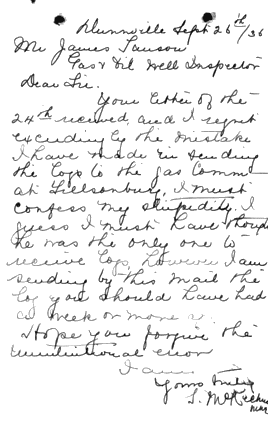 Dunnville Sept 26th/36
Mr James
Gas & Oil Well Inspector
Dear Sir.
Your letter of the
24th received, and I regret
exceedingly the mistake
I have made in sending
the logs to the Gas Comm
at Tillsonburg, I must
confess my stupidity. I
guess I must have thought
he was the only one to
receive logs, however I am
sending by this mail the
log you should have had
a week or more
Hope you forgive the
unintentional error
I am
Yours truly